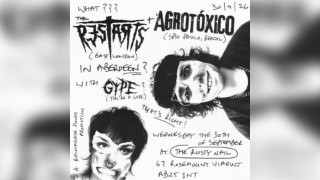 WHAT???
30/9/26
THE
RESTARTS
+ AGROTÓXICO
(EAST LONDON)
(SÃO PAULO, BRAZIL)
IN ABERDEEN?
WITH GYPE?
THAT'S RIGHT!
WEDNESDAY THE 30TH
OF SEPTEMBER
AT THE RUSTY NAIL
67 ROSEMOUNT VIADUCT